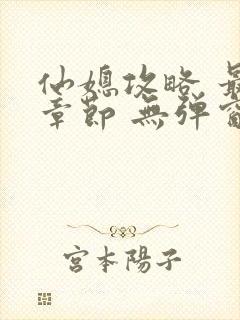 仙媳攻略 最
章節 無弹窗
宮本陽子